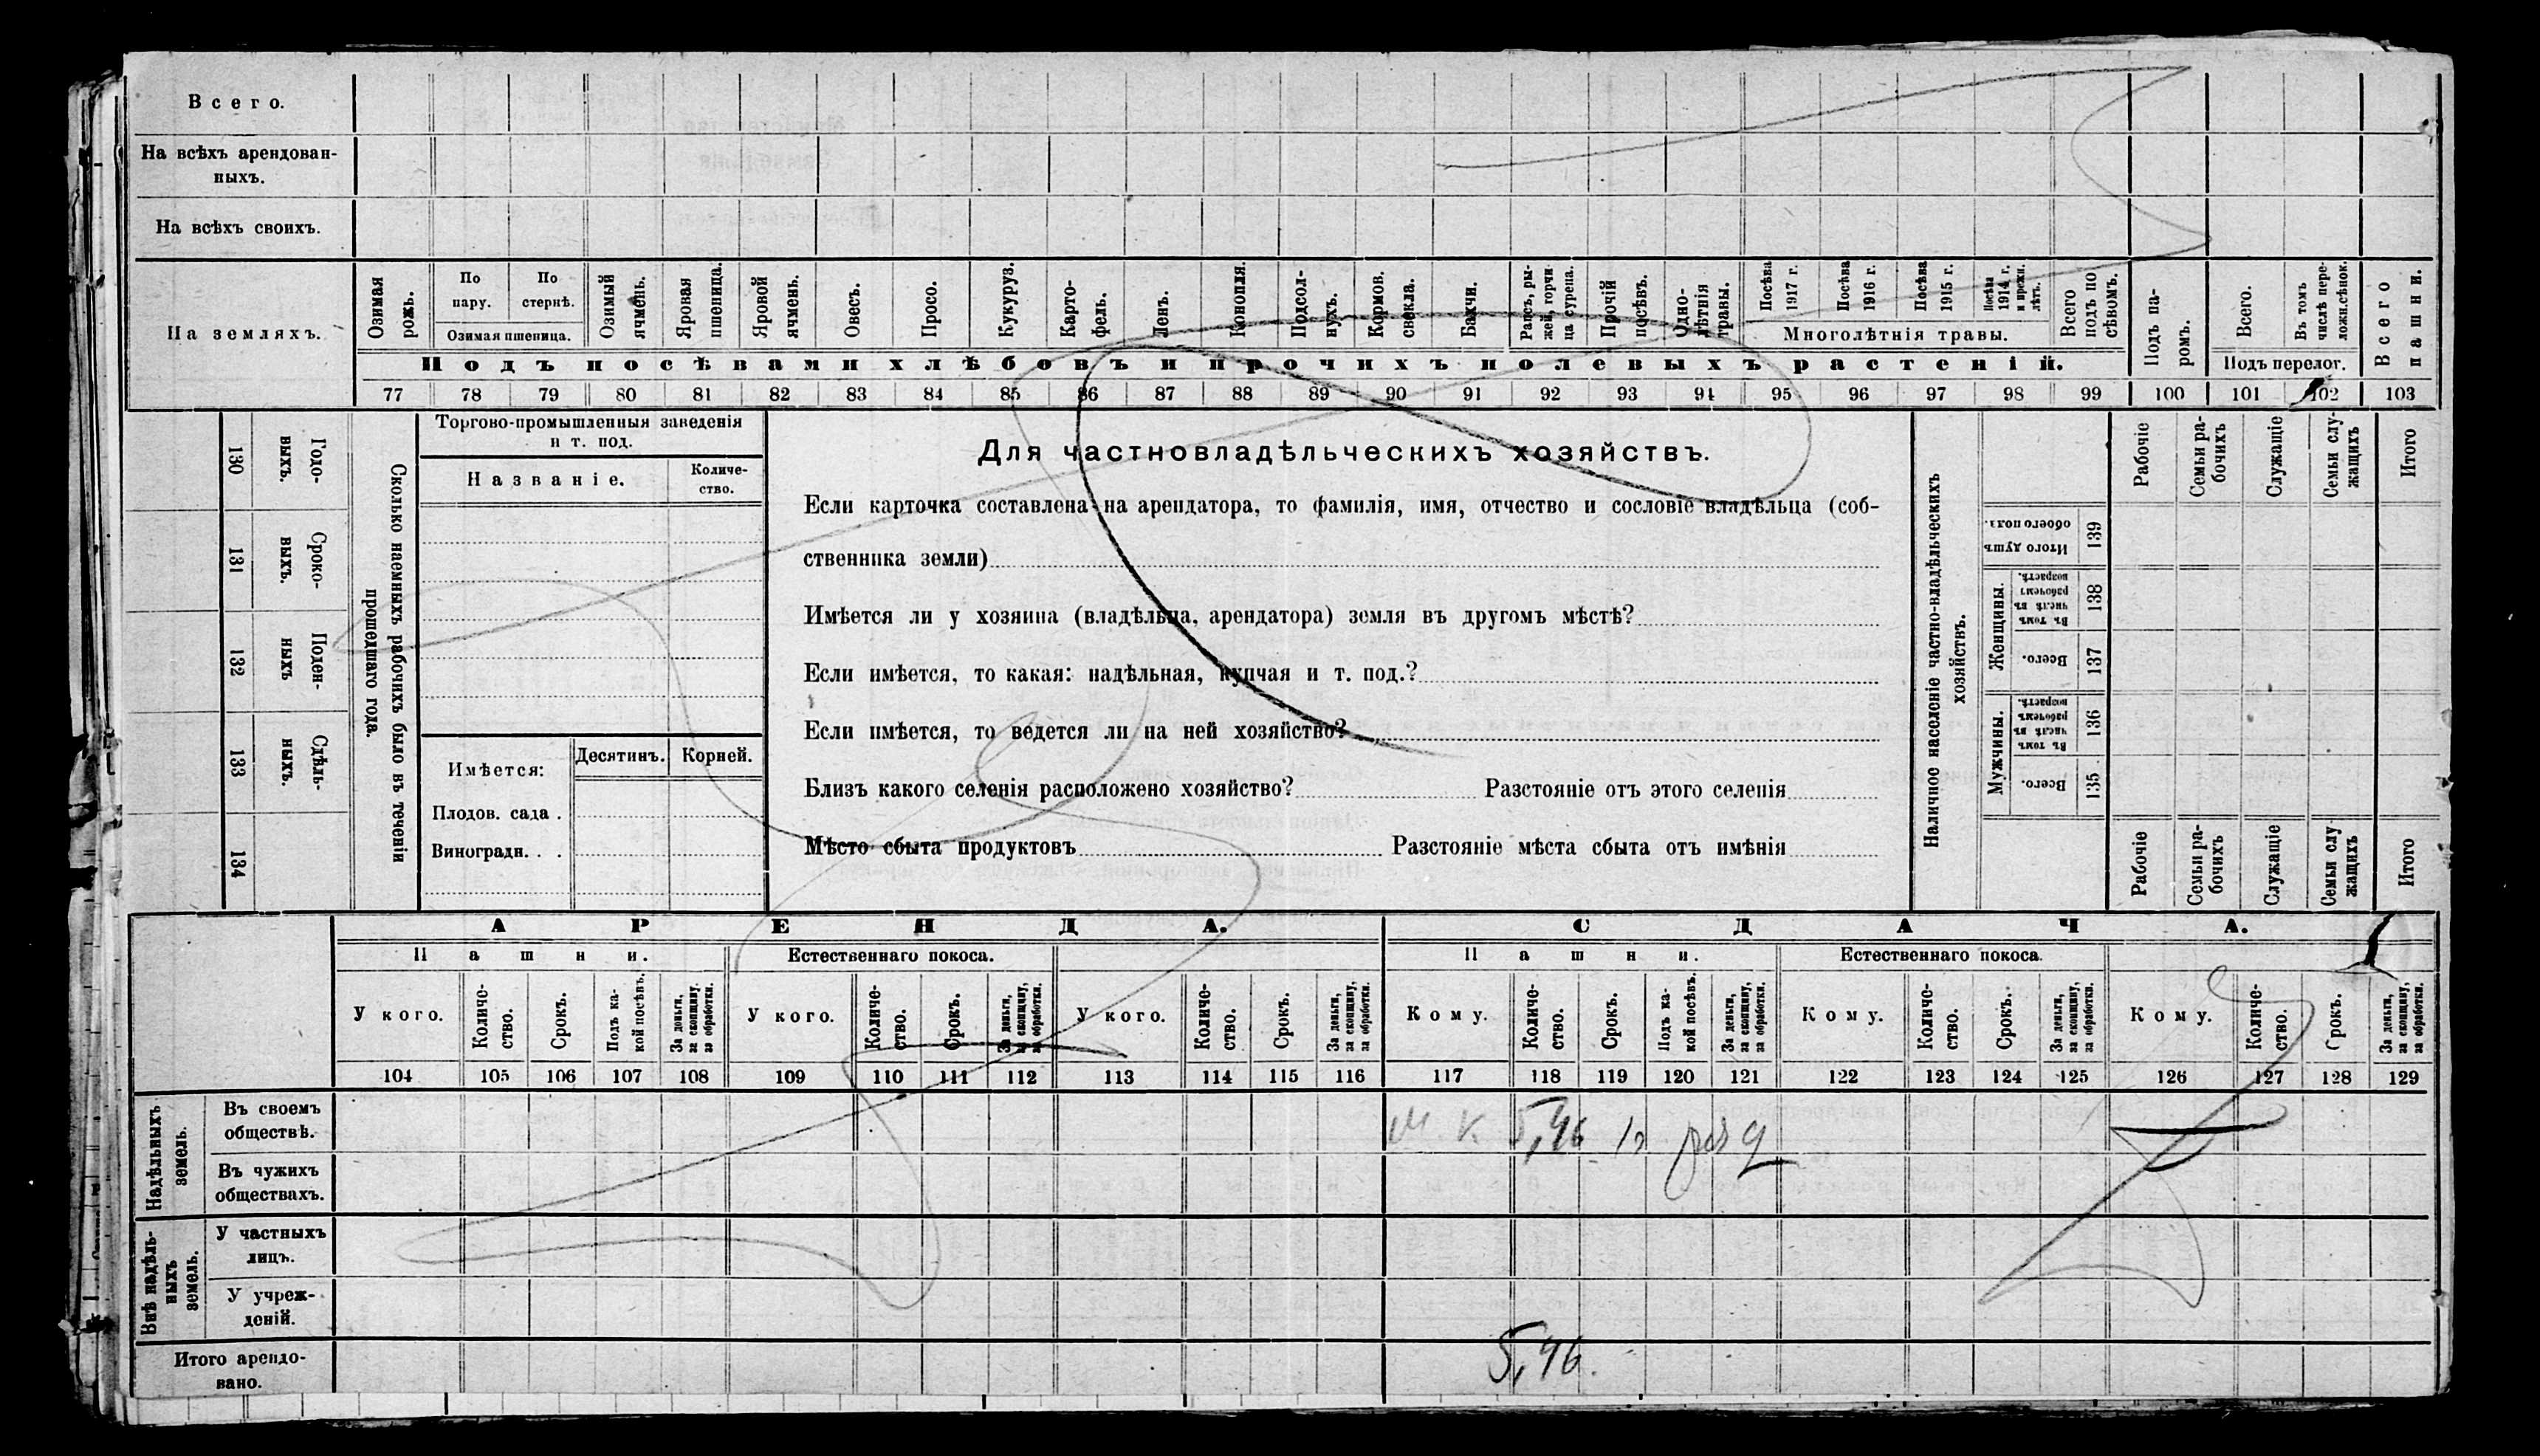 Всего.
На всѣхъ арендован-
ныхъ.
На всѣхъ своихъ.
На земляхъ.
Озимая рожь.
По пару.
По стернѣ.
Озимая пшеница.
Озимый ячмень.
Яровая пшеница.
Яровой ячмень.
Овесъ.
Просо.
Кукуруз.
Карто-
фель.
Ленъ.
Конопля.
Подсол-
нухъ.
Кормов. свекла.
Бахчи.
Рапсъ, ры-
жей, горчи
ца сурепа.
Прочій посѣвъ.
Одно-
лѣтнія травы.
Посѣва 1917 г.
Посѣва 1916 г.
Посѣва 1915 г.
Посѣва 1914 г. и прежн. лѣтъ.
Многолѣтнія травы.
Всего подъ по
сѣвомъ.
Подъ па-
ромъ.
Всего.
Въ томъ числѣ пере-
ложн.сѣнок.
Подъ перелог.
Всего пашни.
Подъ посѣвами хлѣбовъ и прочихъ полевыхъ растеній.
77 78 79 80 81 82 83 84 85 86 87 88 89 90 91 92 93 94 95 96 97 98 99 100 101 102 103
130 Годо-
выхъ.
131 Сроко-
выхъ.
132 Поден-
ныхъ
133 Сдѣль-
ныхъ.
134
Сколько наемныхъ рабочихъ было въ теченіи
прошедшаго года.
Торгово-промышленныя заведенія
и т. под.
Названіе.
Количе-
ство.
Имѣется:
Десятинъ.
Корней.
Плодов. сада .
Виноградн. . .
Для частновладѣльческихъ хозяйствъ.
Если карточка составлена на арендатора, то фамилія, имя, отчество и сословіе владѣльца (соб-
ственника земли)
Имѣется ли у хозяина (владѣльца, арендатора) земля въ другомъ мѣстѣ?
Если имѣется, то какая: надѣльная, купчая и т. под.?
Если имѣется, то ведется ли на ней хозяйство?
Близъ какого селенія расположено хозяйство? Разстояніе отъ этого селенія
Мѣсто сбыта продуктовъ Разстояніе мѣста сбыта отъ имѣнія
Наличное населеніе частно-владѣльческихъ
хозяйствъ.
Рабочіе
Семьи ра-
бочихъ
Служащіе
Семьи слу-
жащихъ
Итого
Итого душъ обоего пола. 139
Женщины.
Въ томъ числѣ въ рабочемъ возрастѣ. 138
Всего. 137
Мужчины.
Въ томъ числѣ въ рабочемъ возрастѣ. 136
Всего. 135
Рабочіе
Семьи ра-
бочихъ
Служащіе
Семьи слу
жащихъ
Итого
АРЕНДА.
СДАЧА.
Пашни.
Естественнаго покоса.
Пашни.
Естественнаго покоса.
У кого.
Количе-
ство.
Срокъ.
Подъ ка-
кой посѣвъ.
За деньги, за скопщину, за обработки.
У кого.
Количе-
ство.
Срокъ.
За деньги, за скопщину, за обработки.
У кого.
Количе-
ство.
Срокъ.
За деньги, за скопщину, за обработки.
Кому.
Количе-
ство.
Срокъ.
Подъ ка-
кой посѣвъ.
За деньги, за скопщину, за обработки.
Кому.
Количе-
ство.
Срокъ.
За деньги, за скопщину, за обработки.
Кому.
Количе-
ство.
Срокъ.
За деньги, за скопщину, за обработки.
104 105 106 107 108 109 110 111 112 113 114 115 116 117 118 119 120 121 122 123 124 125 126 127 128 129
Надѣльныхъ
земель.
Въ своемъ
обществѣ.
5,46
Въ чужихъ
обществахъ.
Внѣ надѣль-
ныхъ
земель.
У частныхъ
лицъ.
У учреж-
деній.
Итого арендо-
вано.
5,46.